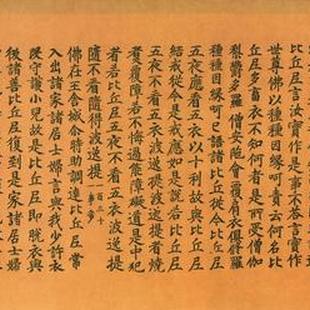 比丘尼言汝實作是事不答言實作
世尊佛以種種因緣呵責云何名比
丘尼多畜衣不知何者是所受僧伽
梨欝多羅僧安陀會覆肩衣俱修羅
種種因緣呵已語諸比丘從今比丘尼
五夜應看五衣以十利故與比丘尼
結戒從今是戒應如是說若比丘尼
五夜不看五衣波逸提波逸提者燒
煮覆障若不悔過能障礙道是中犯
者若比丘尼五夜不看五衣波逸提
隨不看隨得波逸提
佛在王舍城尒時助調達比丘尼常
入出諸家諸居士婦言與我少許衣
段守護小兒故是比丘尼即脫衣與
後諸善比丘尼復到是家諸居士婦